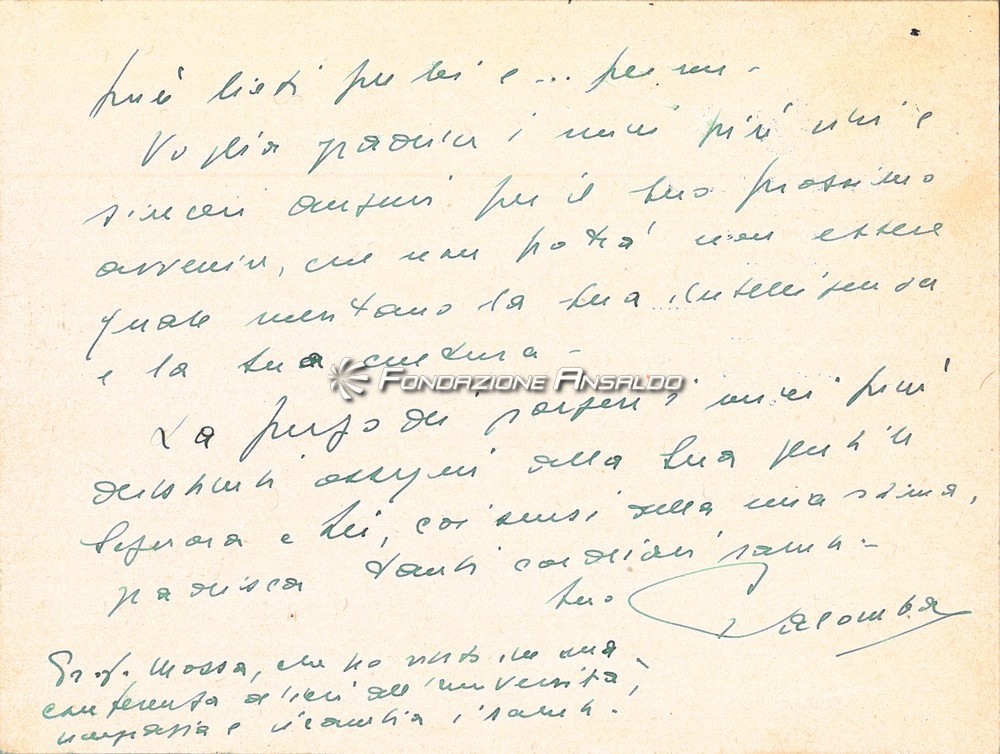 più lieti per lei e... per me -
Voglia gradire i miei più vivi e
sinceri auguri per il Suo prossimo
avvenire, che non potrà non essere
quale meritano la Sua intelligenza
e la Sua cultura -
FONDAZIONE ANSALDO
La prego di porgere i miei più
distinti ossequi alla Sua gentile
Signora e Lei, coi sensi della mia stima,
gradisca tanti cordiali saluti -
Suo Palomba
Prof. Mossa, che ho visto in una
conferenza all'università,
ringrazia e ricambia i saluti.